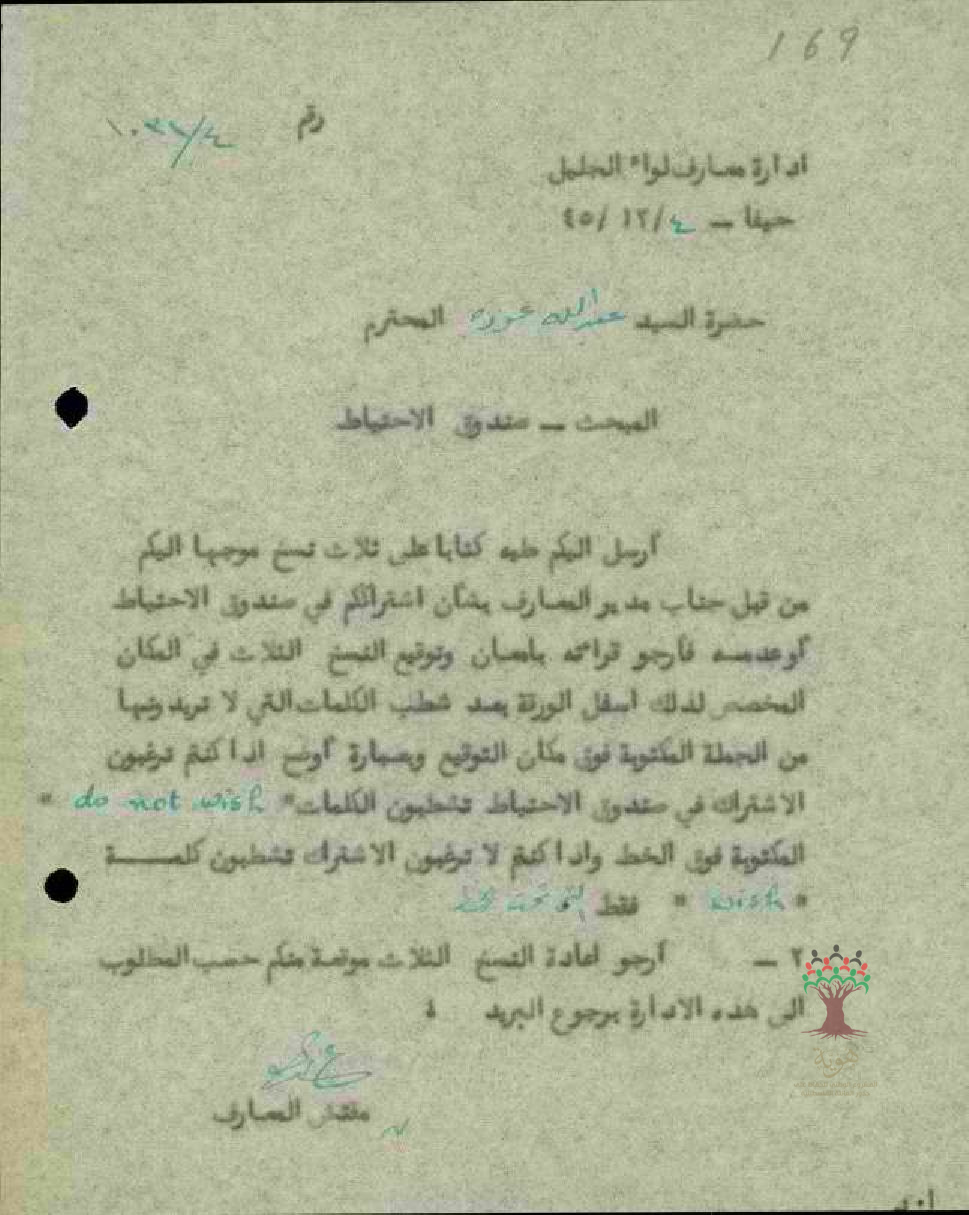 169
رقم
ادارة معارف لواء الجليل
حيفا — ٤/ ١٢ /٤٥
حضرة السيد عبدالله المحترم
المبحث — صندوق الاحتياط
أرسل اليكم طيه كتابا على ثلاث نسخ موجها اليكم
من قبل جناب مدير المعارف بشأن اشتراككم في صندوق الاحتياط
أو عدمه فأرجو قراءته بامعان وتوقيع النسخ الثلاث في المكان
المخصص لذلك اسفل الورقة بعد شطب الكلمات التي لا تريدونها
من الجملة المكتوبة فوق مكان التوقيع وبعبارة أوضح اذا كنتم ترغبون
الاشتراك في صندوق الاحتياط تشطبون الكلمات " do not wish "
المكتوبة فوق الخط واذا كنتم لا ترغبون الاشتراك تشطبون كلمـــة
" wish " فقط التي تحت الخط
٢ — أرجو اعادة النسخ الثلاث موقعة منكم حسب المطلوب
الى هذه الادارة برجوع البريد
مفتش المعارف
هوية